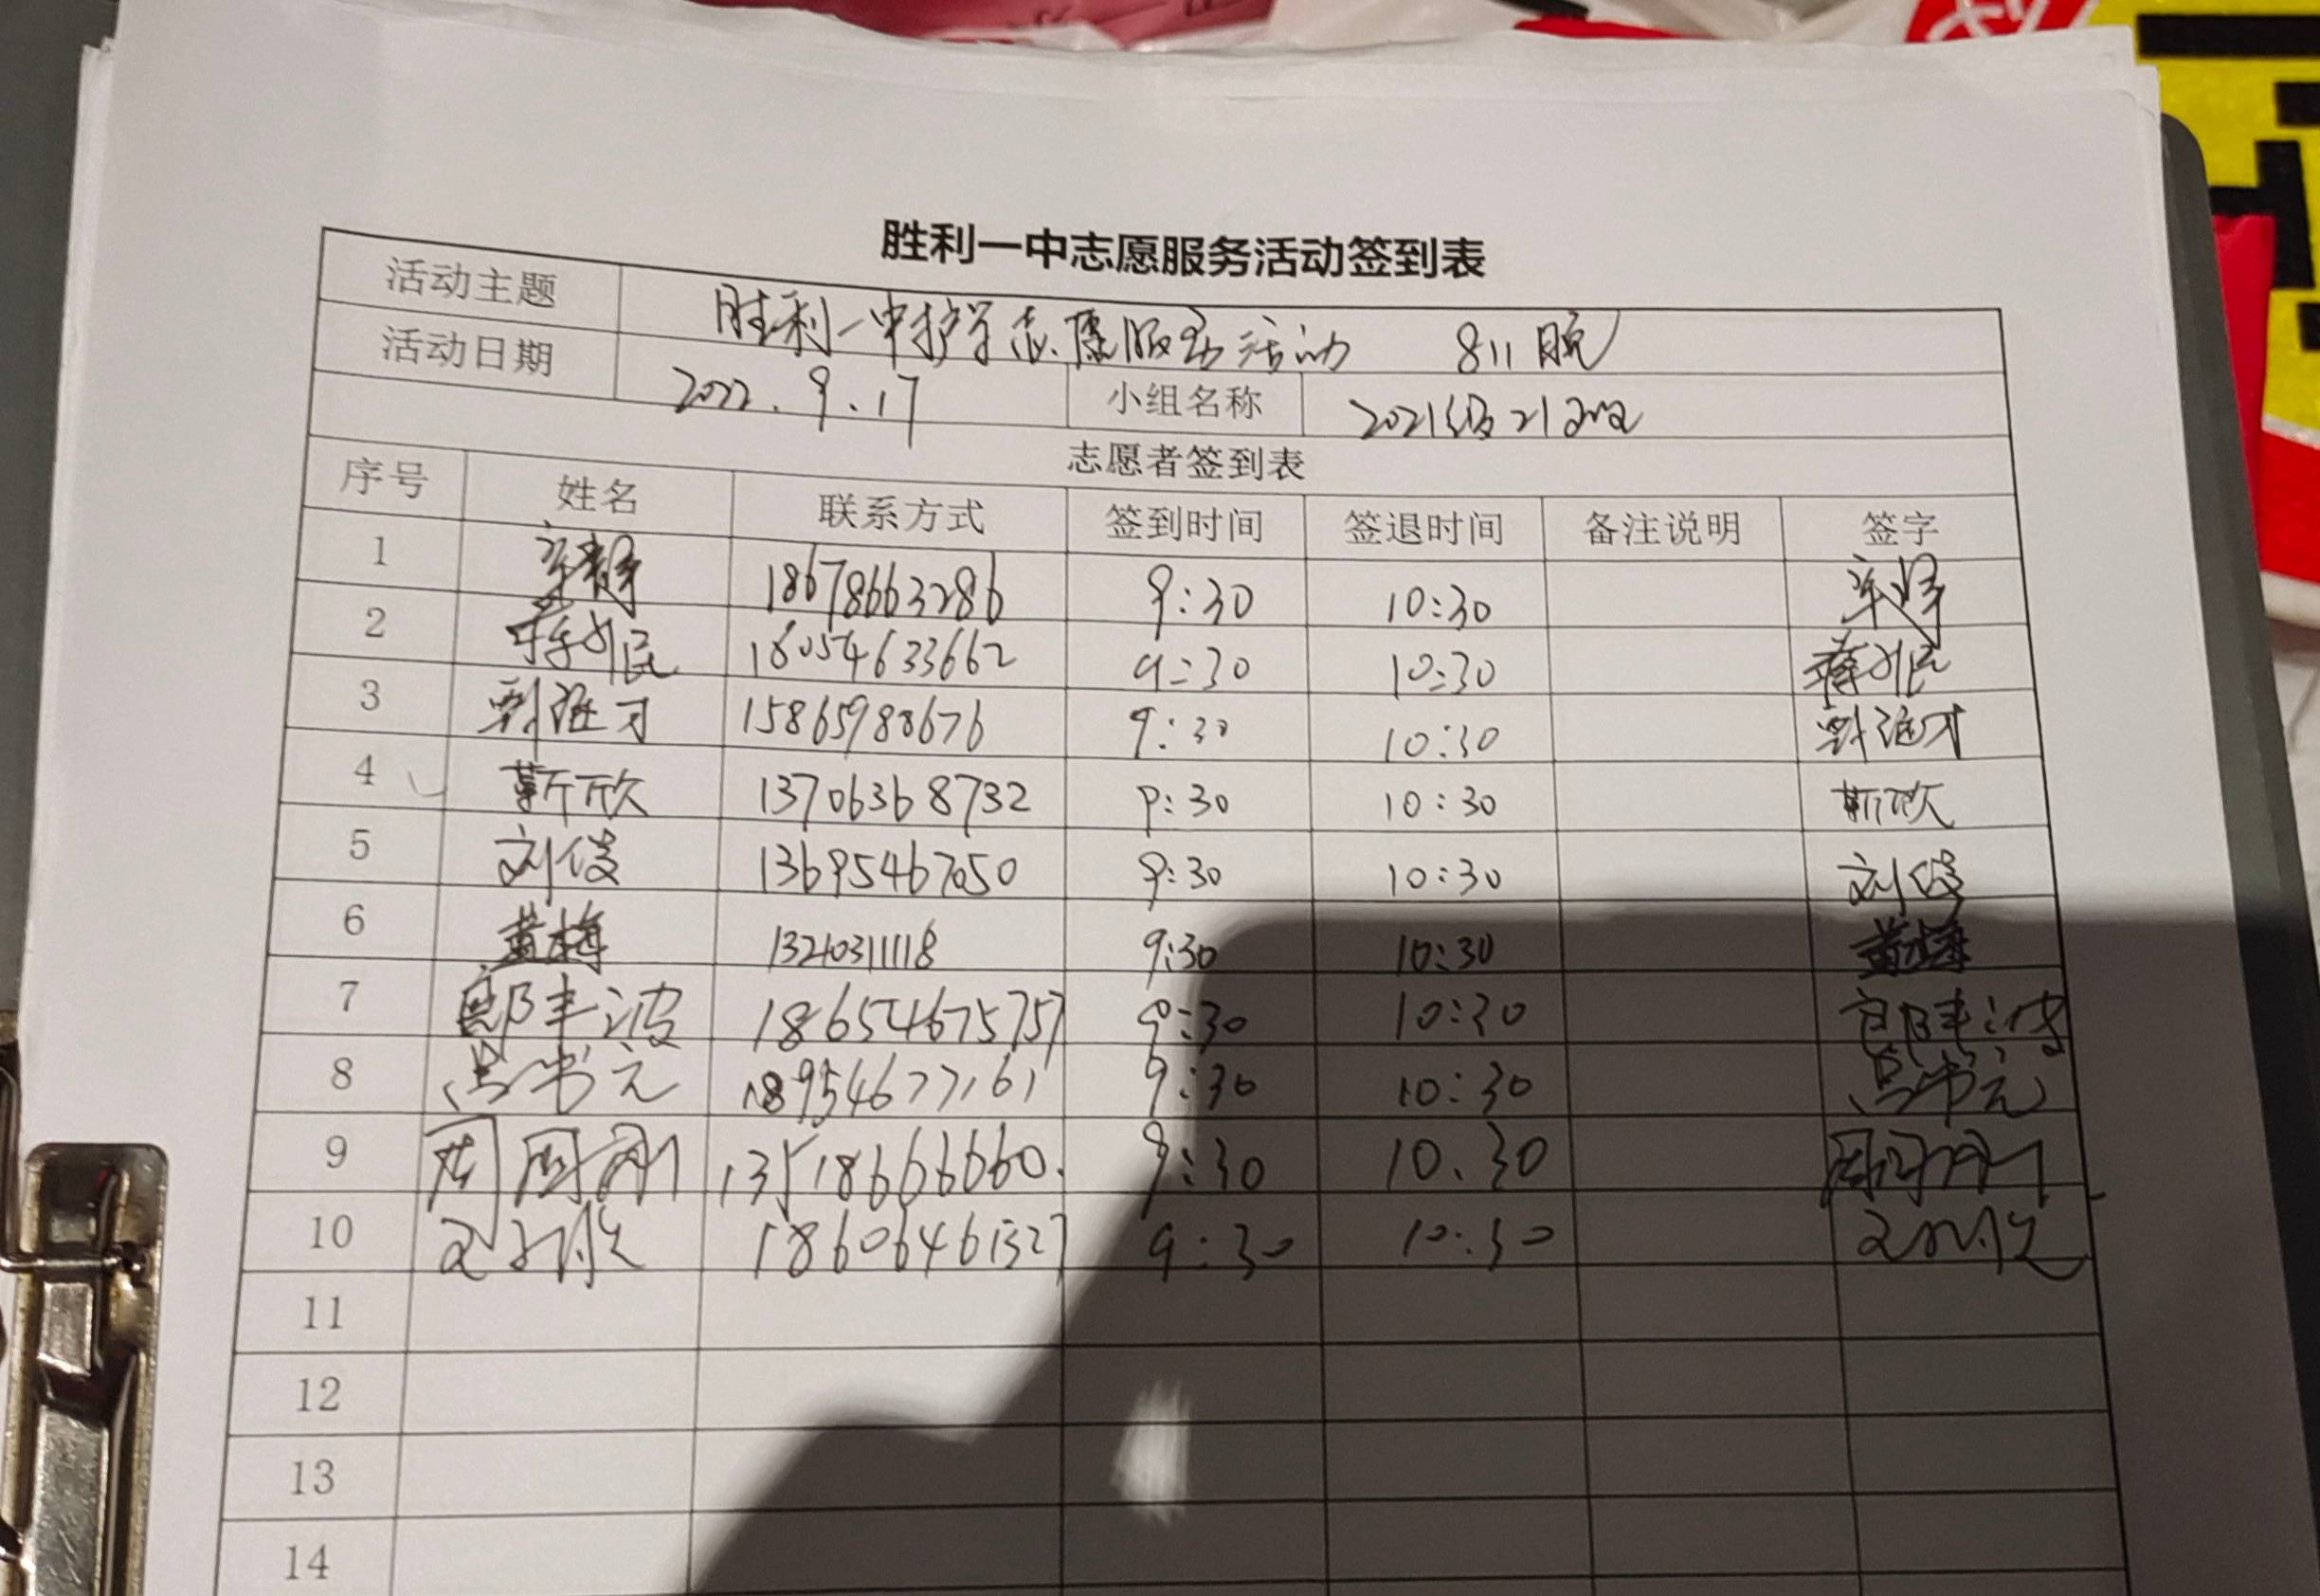 胜利一中志愿服务活动签到表
活动主题 胜利一中护学志愿服务活动 811 晚
活动日期 2022.9.17 小组名称 2021级21班
志愿者签到表
序号 姓名 联系方式 签到时间 签退时间 备注说明 签字
1 18678663286 9:30 10:30
2 18054633662 9:30 10:30
3 15865988676 9:30 10:30
4 靳欣 13706368732 9:30 10:30 靳欣
5 刘俊 13695467050 9:30 10:30 刘俊
6 黄梅 13210311118 9:30 10:30 黄梅
7 18654675757 9:30 10:30
8 吕书元 18954677161 9:30 10:30 吕书元
9 13518666660. 9:30 10.30
10 18606461527 9:30 10:30
11
12
13
14